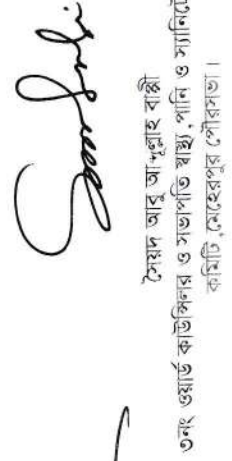 সৈয়দ আবু আব্দুল্লাহ বাপ্পী
৩নং ওয়ার্ড কাউন্সিলর ও সভাপতি স্বাস্থ্য, পানি ও
কমিটি, মেহেরপুর পৌরসভা।